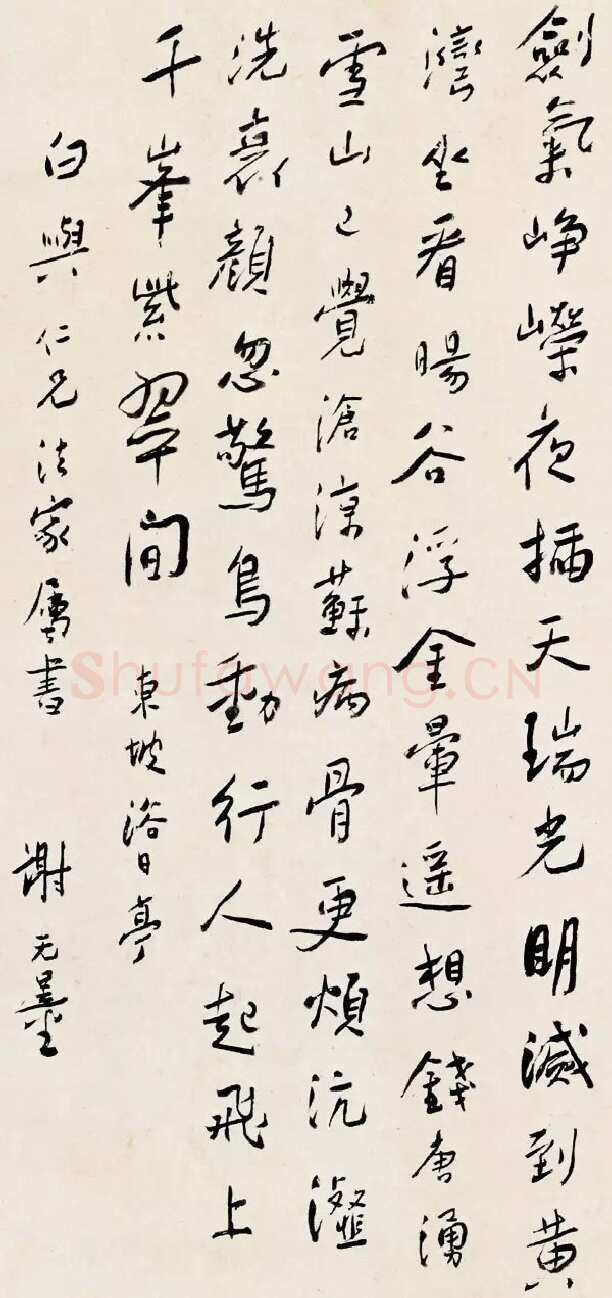 劍氣崢嶸夜插天瑞光明滅到黄
灣坐看暘谷浮金暈遥想錢唐湧
雪山已覺滄涼蘇病骨更煩沆瀣
洗衰顔忽驚鳥動行人起飛上
千峯紫翠間 東坡浴日亭
白與仁兄法家屬書
謝无量
Shufawang.CN